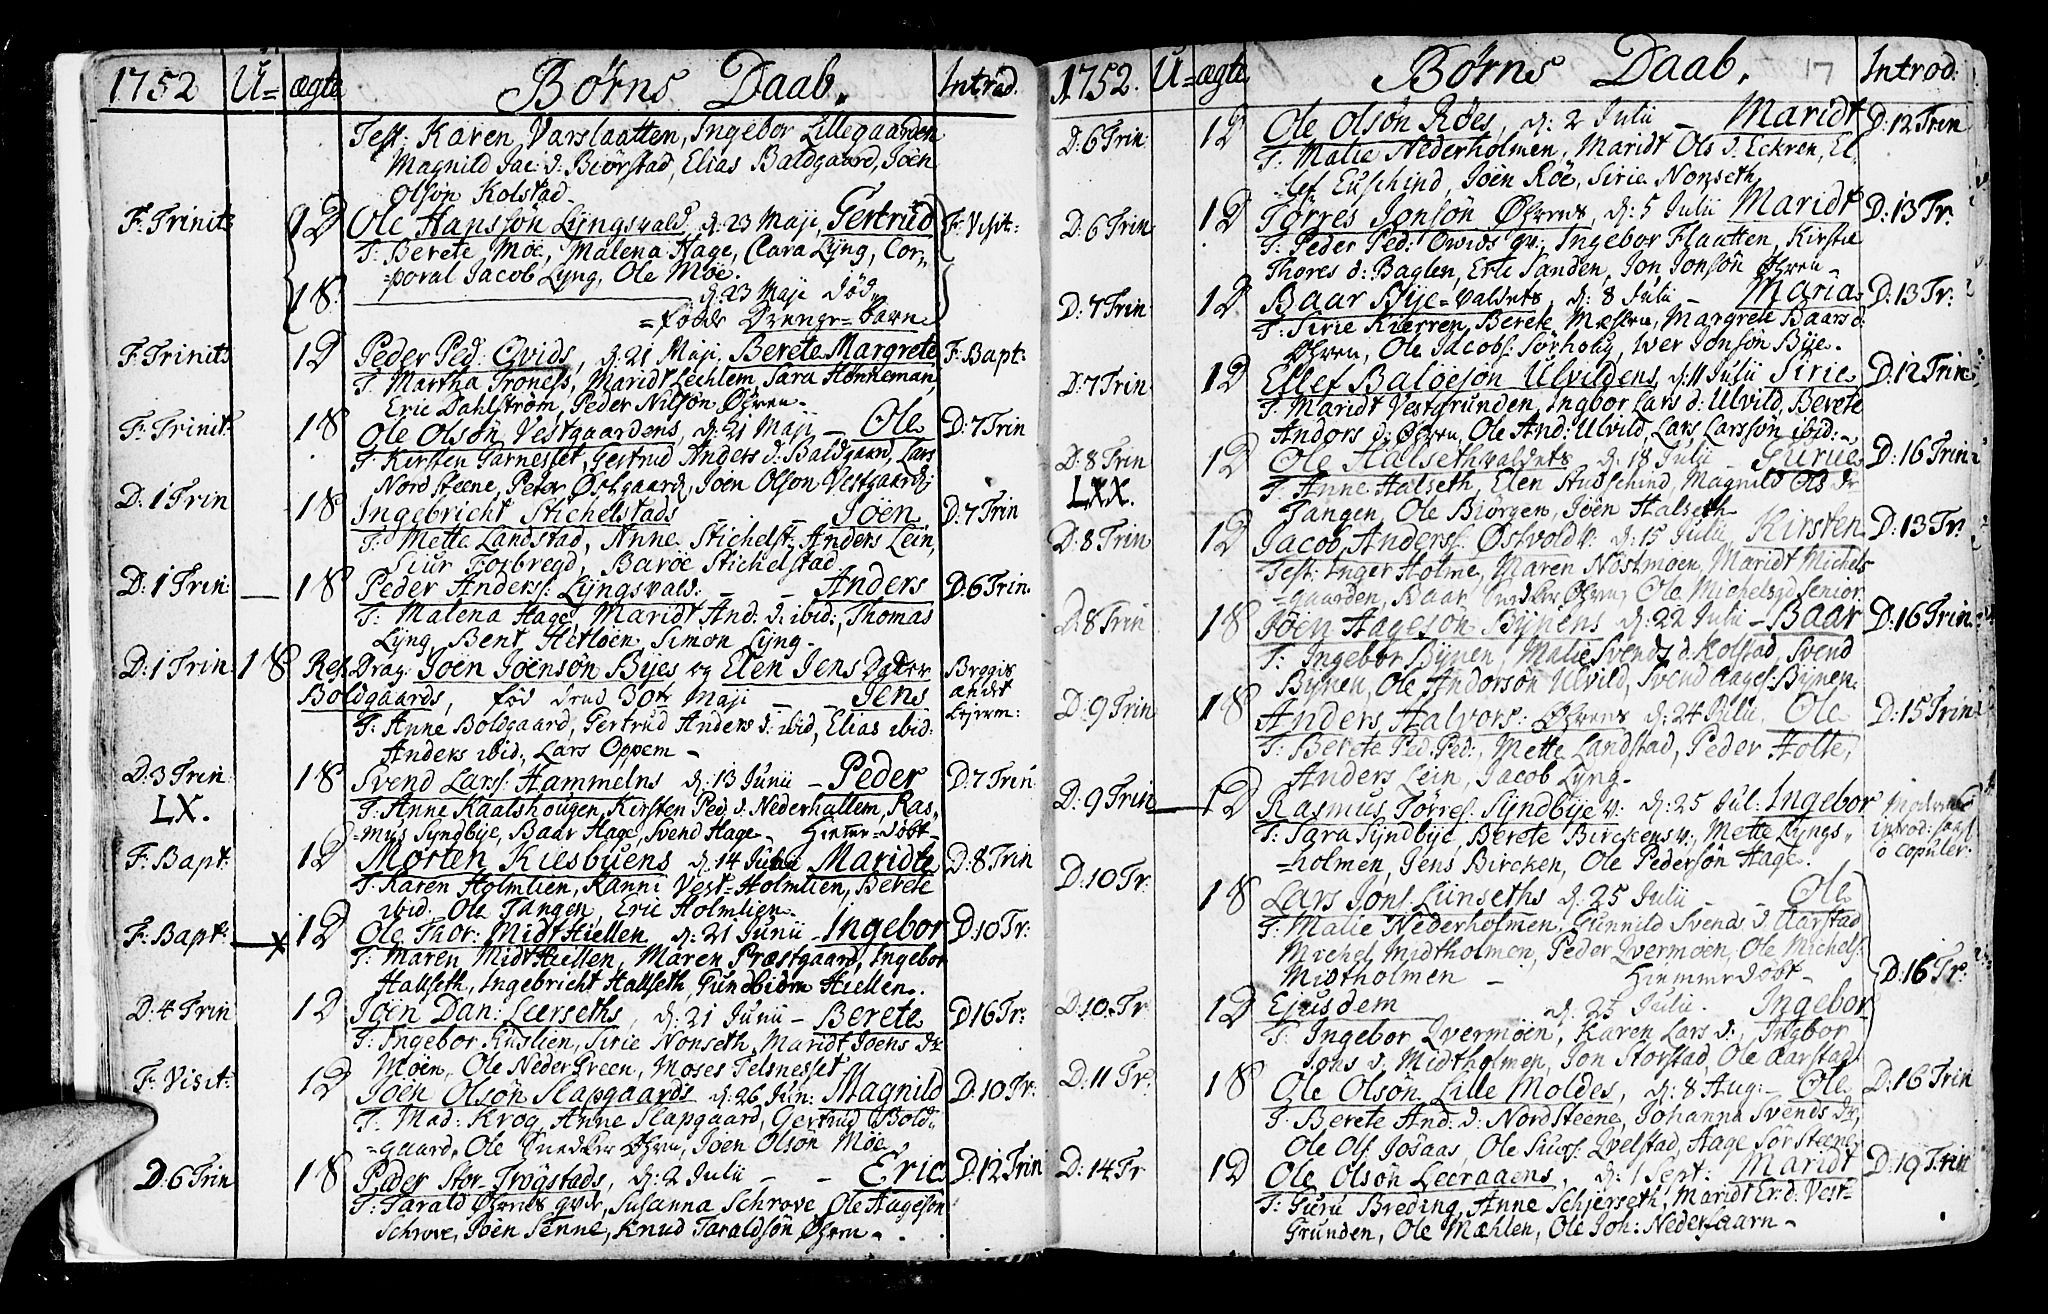 1752 U= ægte Børns Daab. Introd.
Test: Karen Varslaatten, Ingebor Lillegaarden
Magnild Jac: d: Biörstad, Elias Baldgaard, Joen
Olsøn Kolstad.
F: Trinit: 1 D Ole Hansøn Lÿngsvald, d: 23 Maji, Gertrud F: Visit:
T: Berete Möe, Malena Hage, Clara Lÿng, Cor,,
=poral Jacob Lÿng, Ole Möe.
1 8 d: 23 Maji død
=født Drenge=barn
F: Trinit: 1 D Peder Ped: Qvids, d: 21 Maji, Berete Margrete F: Bapt:
T: Martha Troness, Maridt Lechlem, Sara Hönneman,
Eric Dahlström, Peder Nilsön Öhren.
F: Trinit: 1 8 Ole Olsön Vestgaardens, d: 21 Maji - Ole D: 7 Trin
T: Kirsten Garnesset, Gertrud Anders d: Baldgaard, Lars
Nordsteene, Peter Östgaard, Joen Olson Vestgaard
D: 1 Trin 1 8 Ingebricht Stichelstads - Joen D: 7 Trin
T: Mette Landstad, Anne Stichelst: Anders Lein,
Siur Forbregd, Baroe Stichelstad
D: 1 Trin: 1 8 Peder Anderss: Lÿngsvald: - - Anders D: 6 Trin.
T: Malena Hage, Maridt And: d: ibid:, Thomas
Lÿng, Bent Hetloen, Simon Lÿng.
D: 1 Trin 1 8 Res: Drag: Joen Joensøn Bÿes og Elen Jens Datter
Boldgaards, fød dend 30te Maji - - Jens
T: Anne Boldgaard, Gertrud Anders d: ibid, Elias ibid:
Anders ibid, Lars Oppem -
D: 3 Trin: 1 8 Svend Larss: Hammelns d: 13 Junii - Peder D: 7 Trin
LX. T: Anne Kaalshougen, Kirsten Ped: d: Nederhallem, Ras,,
=mus Sÿndbÿe, Baar Hage, Svend Hage - Hiemme=døbt
F: Bapt: 1 D Morten Kiesbuens d: 14 Junii Maridt D: 8 Trin
T: Karen Holmlien, Ranni Vest=Holmlien, Berete
ibid. Ole Tangen, Eric Holmlien.
F: Bapt: 1 D Ole Thor: Midt Hiellen d: 21 Junii - Ingebor D: 10 Tr:
T: Maren Midt Hiellen, Maren Præstgaard, Ingebor
Hallseth, Ingebricht Hallseth, Gundbiörn Hiellen.
D: 4 Trin 1 D Joen Dan: Leerseths, d: 21 Junii - Berete D 16 Tr:
T: Ingebor Kuslien, Sirie Nonseth, Maridt Joens Dr
Möen, Ole Neder Green, Moses Telsnesset
F: Visit: 1 D Joen Olsön Slapgaards d: 26 Jun: Magnild D: 10 Tr:
T: Mad: Krog, Anne Slapgaard, Gertrud Bold,
=gaard, Ole Snedker Öhren, Joen Olson Möe.
D: 6 Trin 1 8 Peder Stor Trögstads, d: 2 Julii - - Eric D: 12 Trin
T: Tarald Öhrens qvde, Susanna Schrove, Ole Hageson
Schrove, Joen Senne, Knud Taraldsön Öhren.
1752. U= ægte Børns Daab. 17 Introd:
D: 6 Trin 1 D Ole Olsön Röes, d: 2 Julii - Maridt D: 12 Trin
T: Malie Nederholmen, Maridt Ols d: Eckren, El,
=lef Euschind, Joen Röe, Sirie Nonseth.
D: 6 Trin 1 D Törres Jonsön Öhrens, d: 5 Julii Maridt D: 13 Tr.
T: Peder Ped: Qvids qv:, Ingebor Flaatten, Kirstie
Thores d: Baglen, Erte Sanden, Jon Jonsön Öhren.
D: 7 Trin 1 D Baar Bÿe=valdets d: 8 Julii - Maria D: 13 Tr:
T: Sirie Kierren, Berete Næsten, Margrete Baars d:
Öhren, Ole Jacobs: Sørhoug, Iver Jonsön Bÿe.
D: 7 Trin 1 D Ellef Baloesön Ulvildens, d: 11 Julii Sirie D: 12 Trin
T: Maridt Vestgrunden, Ingbor Lars d: Ulvild, Berete
Andors d: Öhren, Ole And: Ulvild, Lars Larssön ibid:
D: 8 Trin 1 D Ole Halsethvaldets d: 18 Julii - Gurue D: 16 Trin
LXX. T: Anne Halseth, Elen Stubschind, Magnild Ols dr
Tangen, Ole Biörgen, Joen Halseth
D: 8 Trin 1 D Jacob Anderss: Östvold: d: 15 Julii Kirsten D: 13 Tr:
Test: Inger Holme, Maren Nostmoen, Maridt Michels
=gaarden, Baar Snedker Öhren, Ole Michelsgd Senior.
D: 8 Trin 1 8 Joen Hagesön Bÿnens d: 22 Julii - Baar D: 16 Trin
T: Ingebor Bÿnen, Malie Svends d. Kolstad, Svend
Bÿnen, Ole Andorsön Ulvild, Svend Hages: Bÿnen.
D: 9 Trin 1 8 Anders Halvors: Öhrens d: 24 Julii Ole D: 15 Trin
T: Berete Ped: Ped:, Mette Landstad, Peder Holte,
Anders Lein, Jacob Lÿng.
D: 9 Trin 1 D Rasmus Törres: Sÿndbÿe v: d: 25 Jul: Ingebor
T: Sara Sÿndbÿe, Berete Birckens v:, Mette Lÿngs,, introd:
=holmen, Jens Bircken, Ole Pedersön Hage. o copuler:
D: 10 Tr: 1 8 Lars Jons: Lunseths d: 25 Julii - Ole
T: Malie Nederholmen, Gunnild Svends d. Aarstad
Michel Midtholmen, Peder Qvermoen, Ole Michels:
Midtholmen - Hiemmedøbt - D: 16 Tr:
D: 10 Tr 1 D Ejusdem d: 25 Julii. Ingebor
T: Ingebor Qvermöen, Karen Lars d:, Ingbor
Jons d: Midtholmen, Jon Storstad, Ole Aarstad
D: 11 Tr: 1 8 Ole Olsön Lille Moldes, d: 8 Aug: - Ole D: 16 Trin
T: Berete And: d: Nordsteene, Johanna Svends Dr,
Ole Ols: Josaas, Ole Siurs: Qvelstad, Hage Sørsteene
D: 14 Tr 1 D Ole Olsön Leeraaens, d: 1 Sept: Maridt D: 19 Trin
T: Guru Breding, Anne Schjerseth, Maridt Er: d: Vest=
Grunden, Ole Mæhlen, Ole Joh: Nedersaarn -